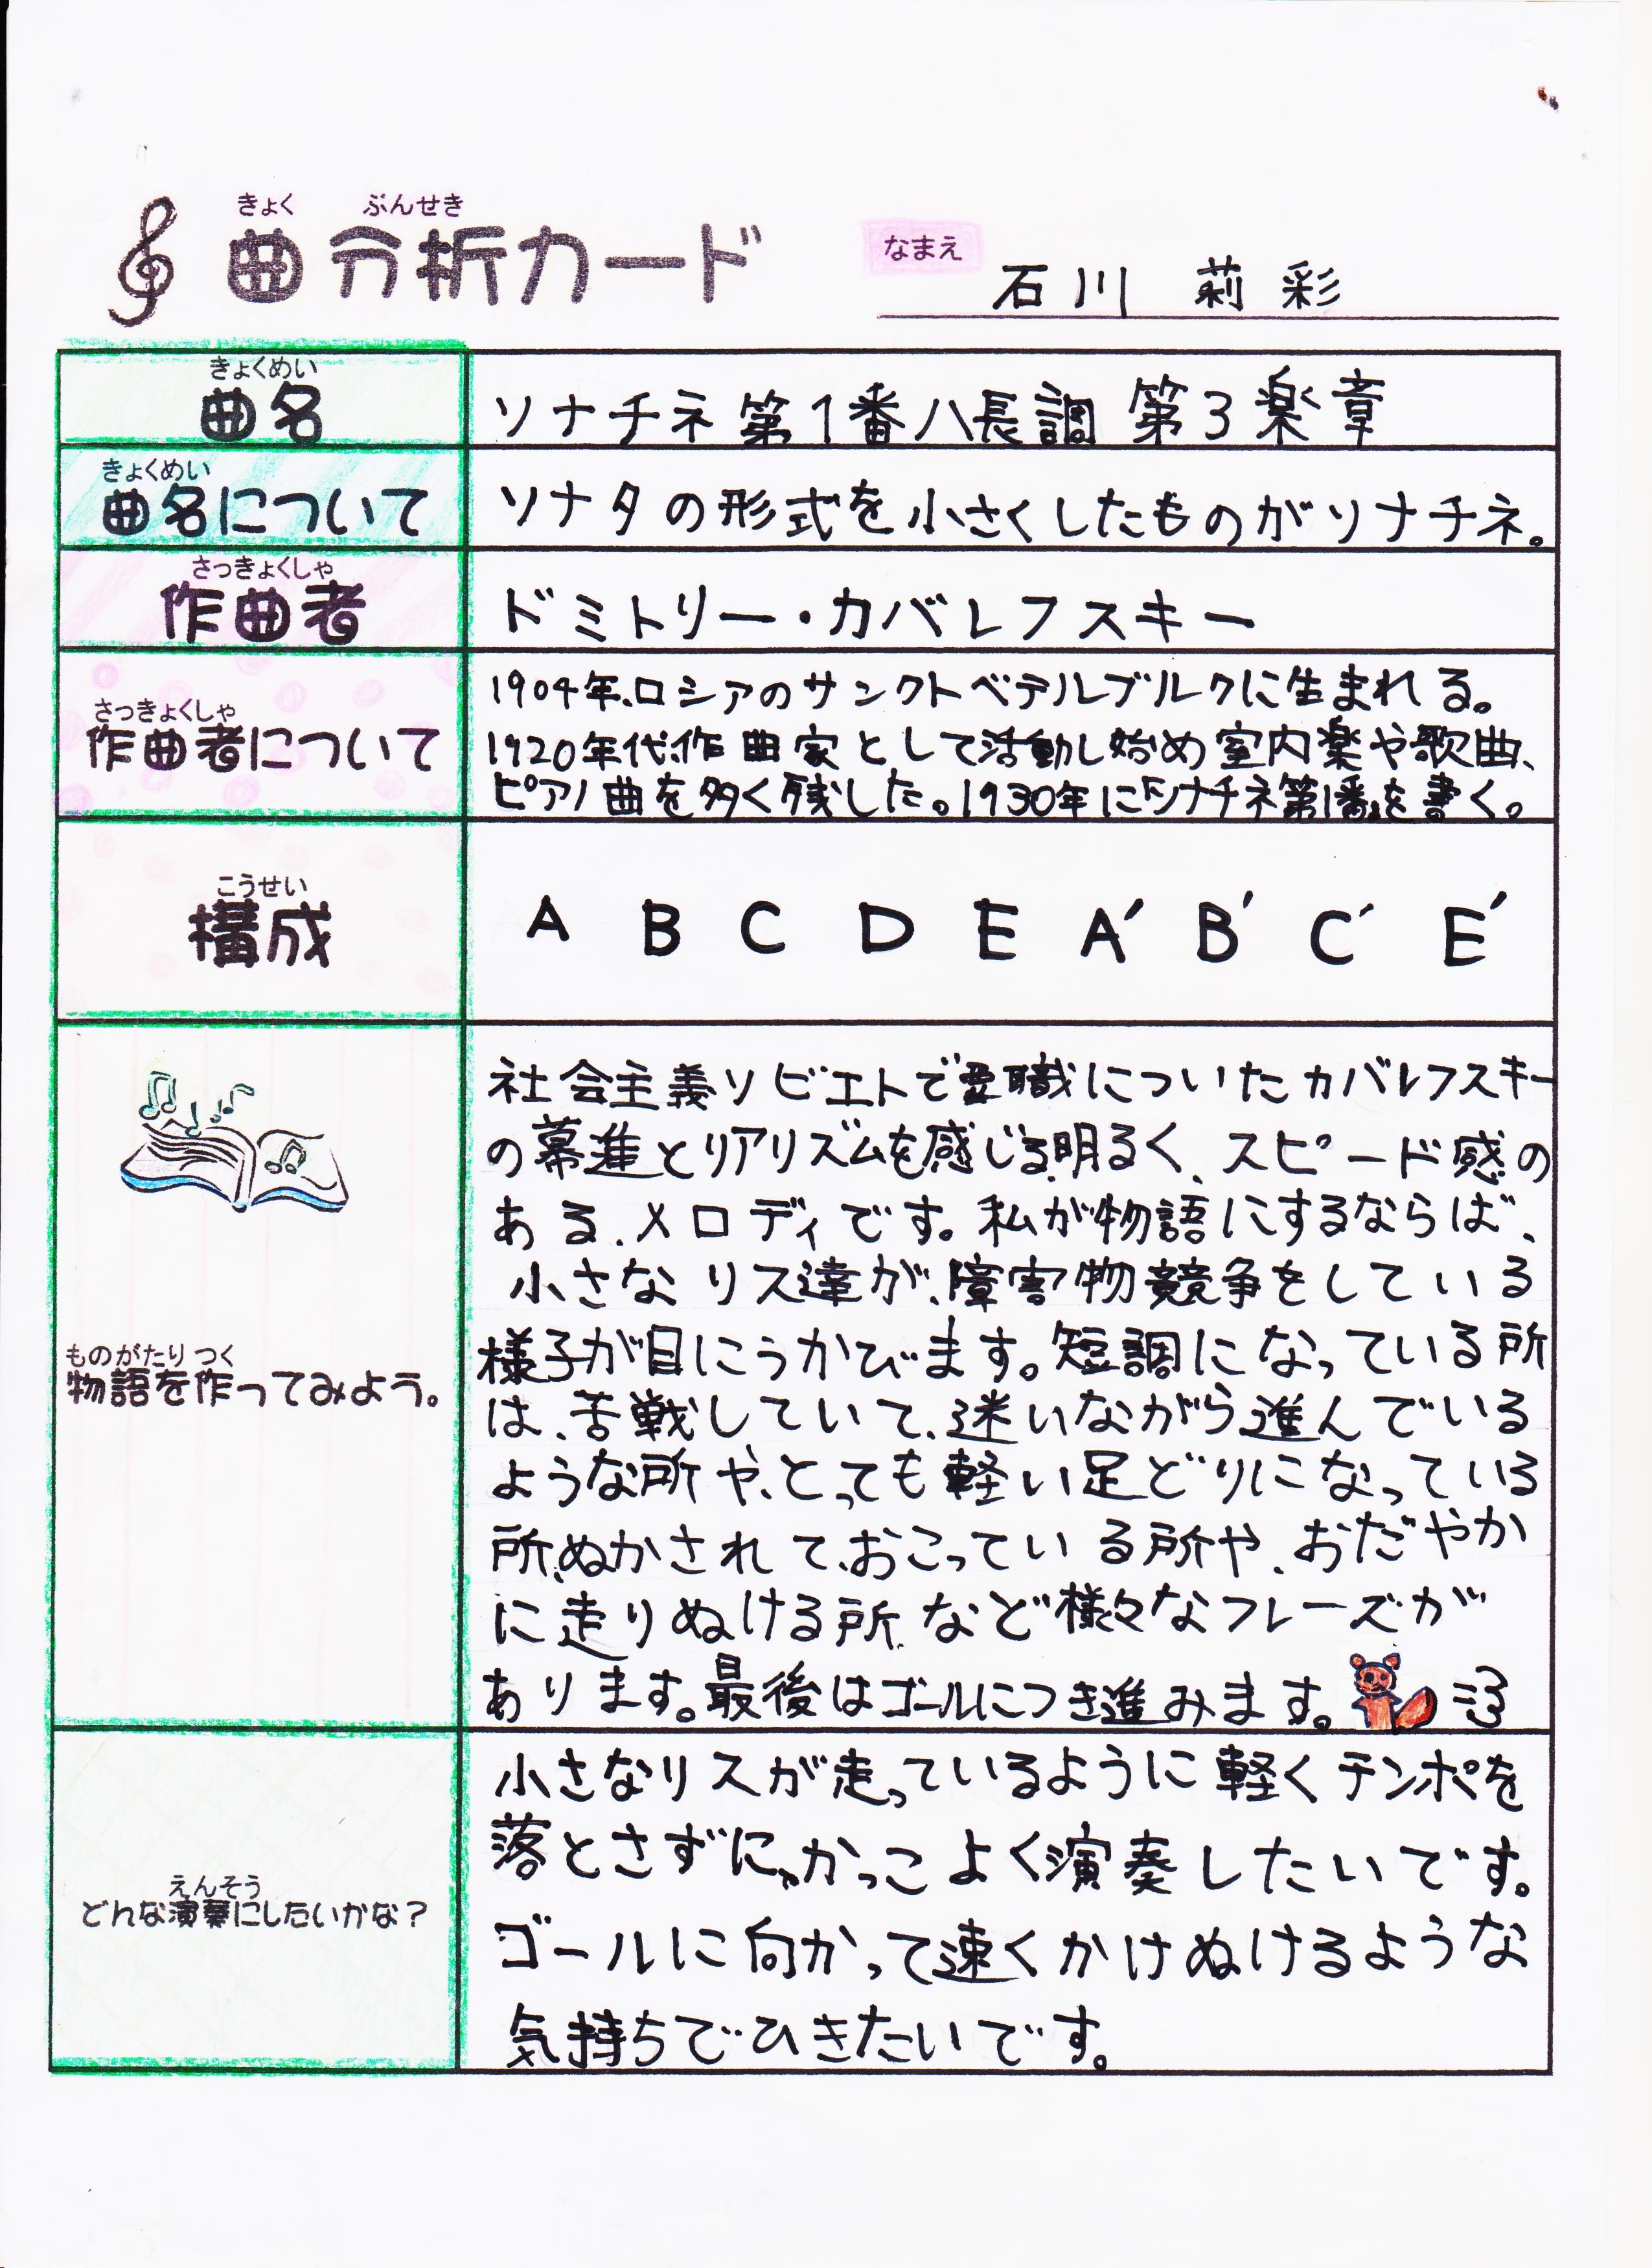 きょく ぶんせき
曲分析カード
なまえ
石川 莉彩
きょくめい
曲名
ソナチネ第1番ハ長調 第3楽章
きょくめい
曲名について
ソナタの形式を小さくしたものがソナチネ。
さっきょくしゃ
作曲者
ドミトリー・カバレフスキー
さっきょくしゃ
作曲者について
1904年、ロシアのサンクトペテルブルクに生まれる。
1920年代、作曲家として活動し始め室内楽や歌曲、
ピアノ曲を多く残した。1930年に「ソナチネ第1番」を書く。
こうせい
構成
A B C D E A' B' C' E'
ものがたり つく
物語を作ってみよう。
社会主義ソビエトで要職についたカバレフスキー
の前進とリアリズムを感じる、明るく、スピード感の
ある、メロディです。私が物語にするならば、
小さなリス達が、障害物競争をしている
様子が目にうかびます。短調になっている所
は、苦戦していて、迷いながら進んでいる
ような所や、とっても軽い足どりになっている
所、ぬかされて、おこっている所や、おだやか
に走りぬける所、など様々なフレーズが
あります。最後はゴールにつき進みます。
えんそう
どんな演奏にしたいかな?
小さなリスが走っているように軽くテンポを
落とさずに、かっこよく演奏したいです。
ゴールに向かって速くかけぬけるような
気持ちでひきたいです。